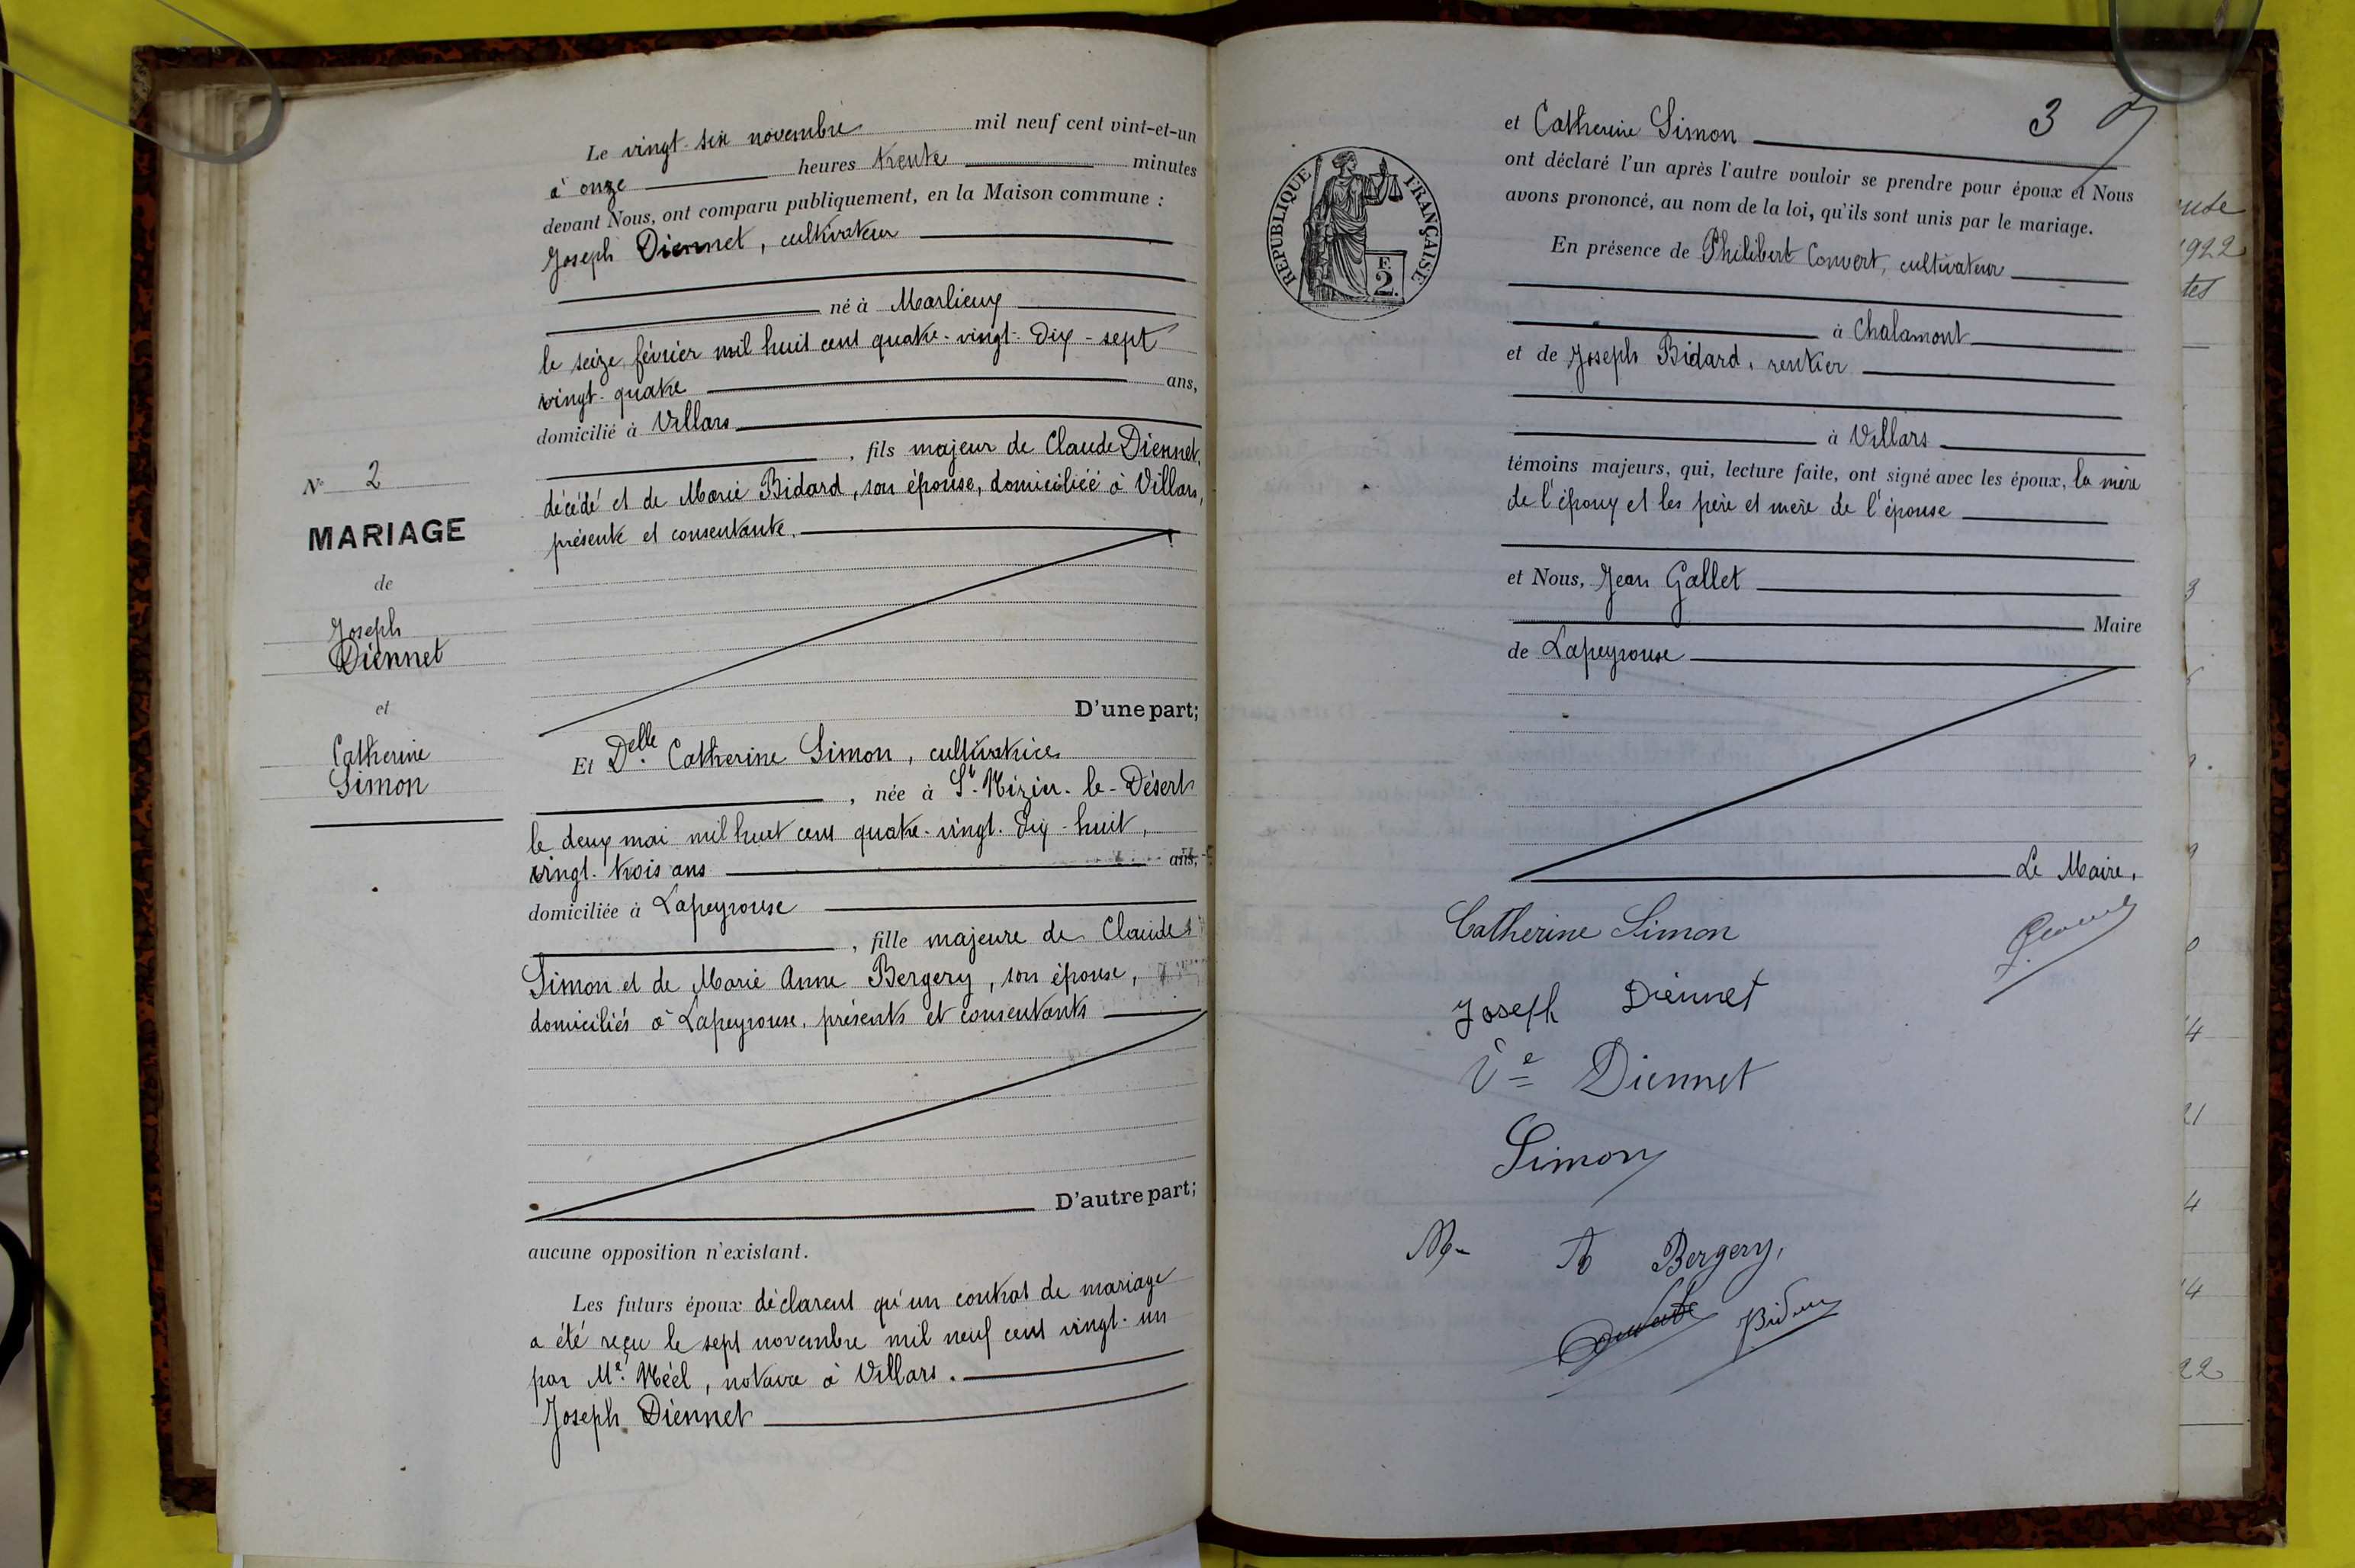 Le vingt-six novembre mil neuf cent vint-et-un
à onze heures trente minutes
devant Nous, ont comparu publiquement, en la Maison commune :
Joseph Diennet, cultivateur
né à Marlieux
le seize février mil huit cent quatre-vingt-dix-sept
vingt-quatre ans,
domicilié à Villars
, fils majeur de Claude Diennet,
décédé et de Marie Bidard, son épouse, domiciliée à Villars,
présente et consentante.
D'une part;
N° 2
MARIAGE
de
Joseph
Diennet
et
Catherine
Simon
Et Delle Catherine Simon, cultivatrice
, née à St-Nizier-le-Désert
le deux mai mil huit cent quatre-vingt-dix-huit,
vingt-trois ans ans,
domiciliée à Lapeyrouse
, fille majeure de Claude
Simon et de Marie Anne Bergery, son épouse,
domiciliés à Lapeyrouse, présents et consentants
D'autre part;
aucune opposition n'existant.
Les futurs époux déclarent qu'un contrat de mariage
a été reçu le sept novembre mil neuf cent vingt-un
par Me Néel, notaire à Villars.
Joseph Diennet
3
et Catherine Simon
ont déclaré l'un après l'autre vouloir se prendre pour époux et Nous
avons prononcé, au nom de la loi, qu'ils sont unis par le mariage.
RÉPUBLIQUE FRANÇAISE
F.
2.
En présence de Philibert Convert, cultivateur
à Chalamont
et de Joseph Bidard, rentier
à Villars
témoins majeurs, qui, lecture faite, ont signé avec les époux, la mère
de l'époux et les père et mère de l'épouse
et Nous, Jean Gallet
Maire
de Lapeyrouse
Le Maire,
Catherine Simon
Joseph Diennet
Ve Diennet
Simon
M A Bergery,
Bidard
1922
22